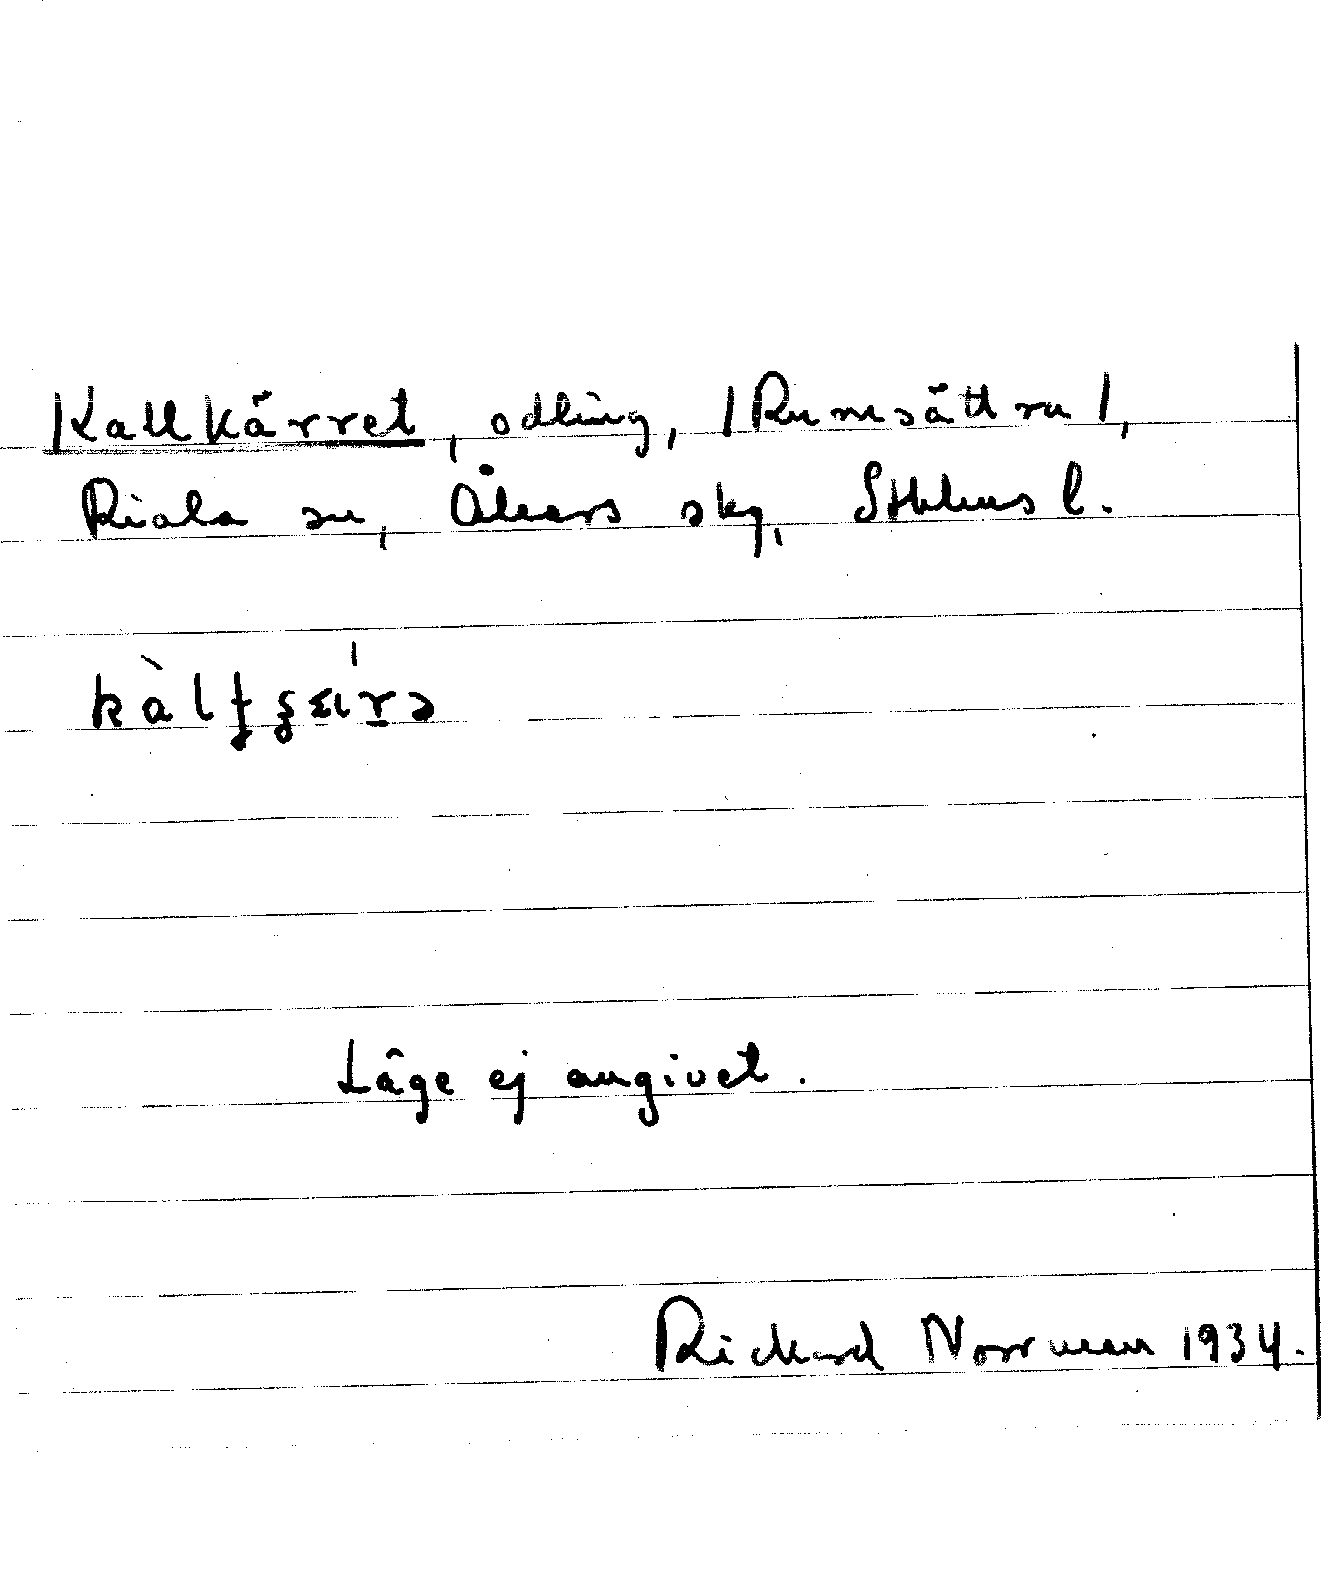 Kallkärret, odling, /Rumsättra/,
Riala sn, Åkers skg, Sthlms l.
Läge ej angivet.
Rickard Norrman 1934.